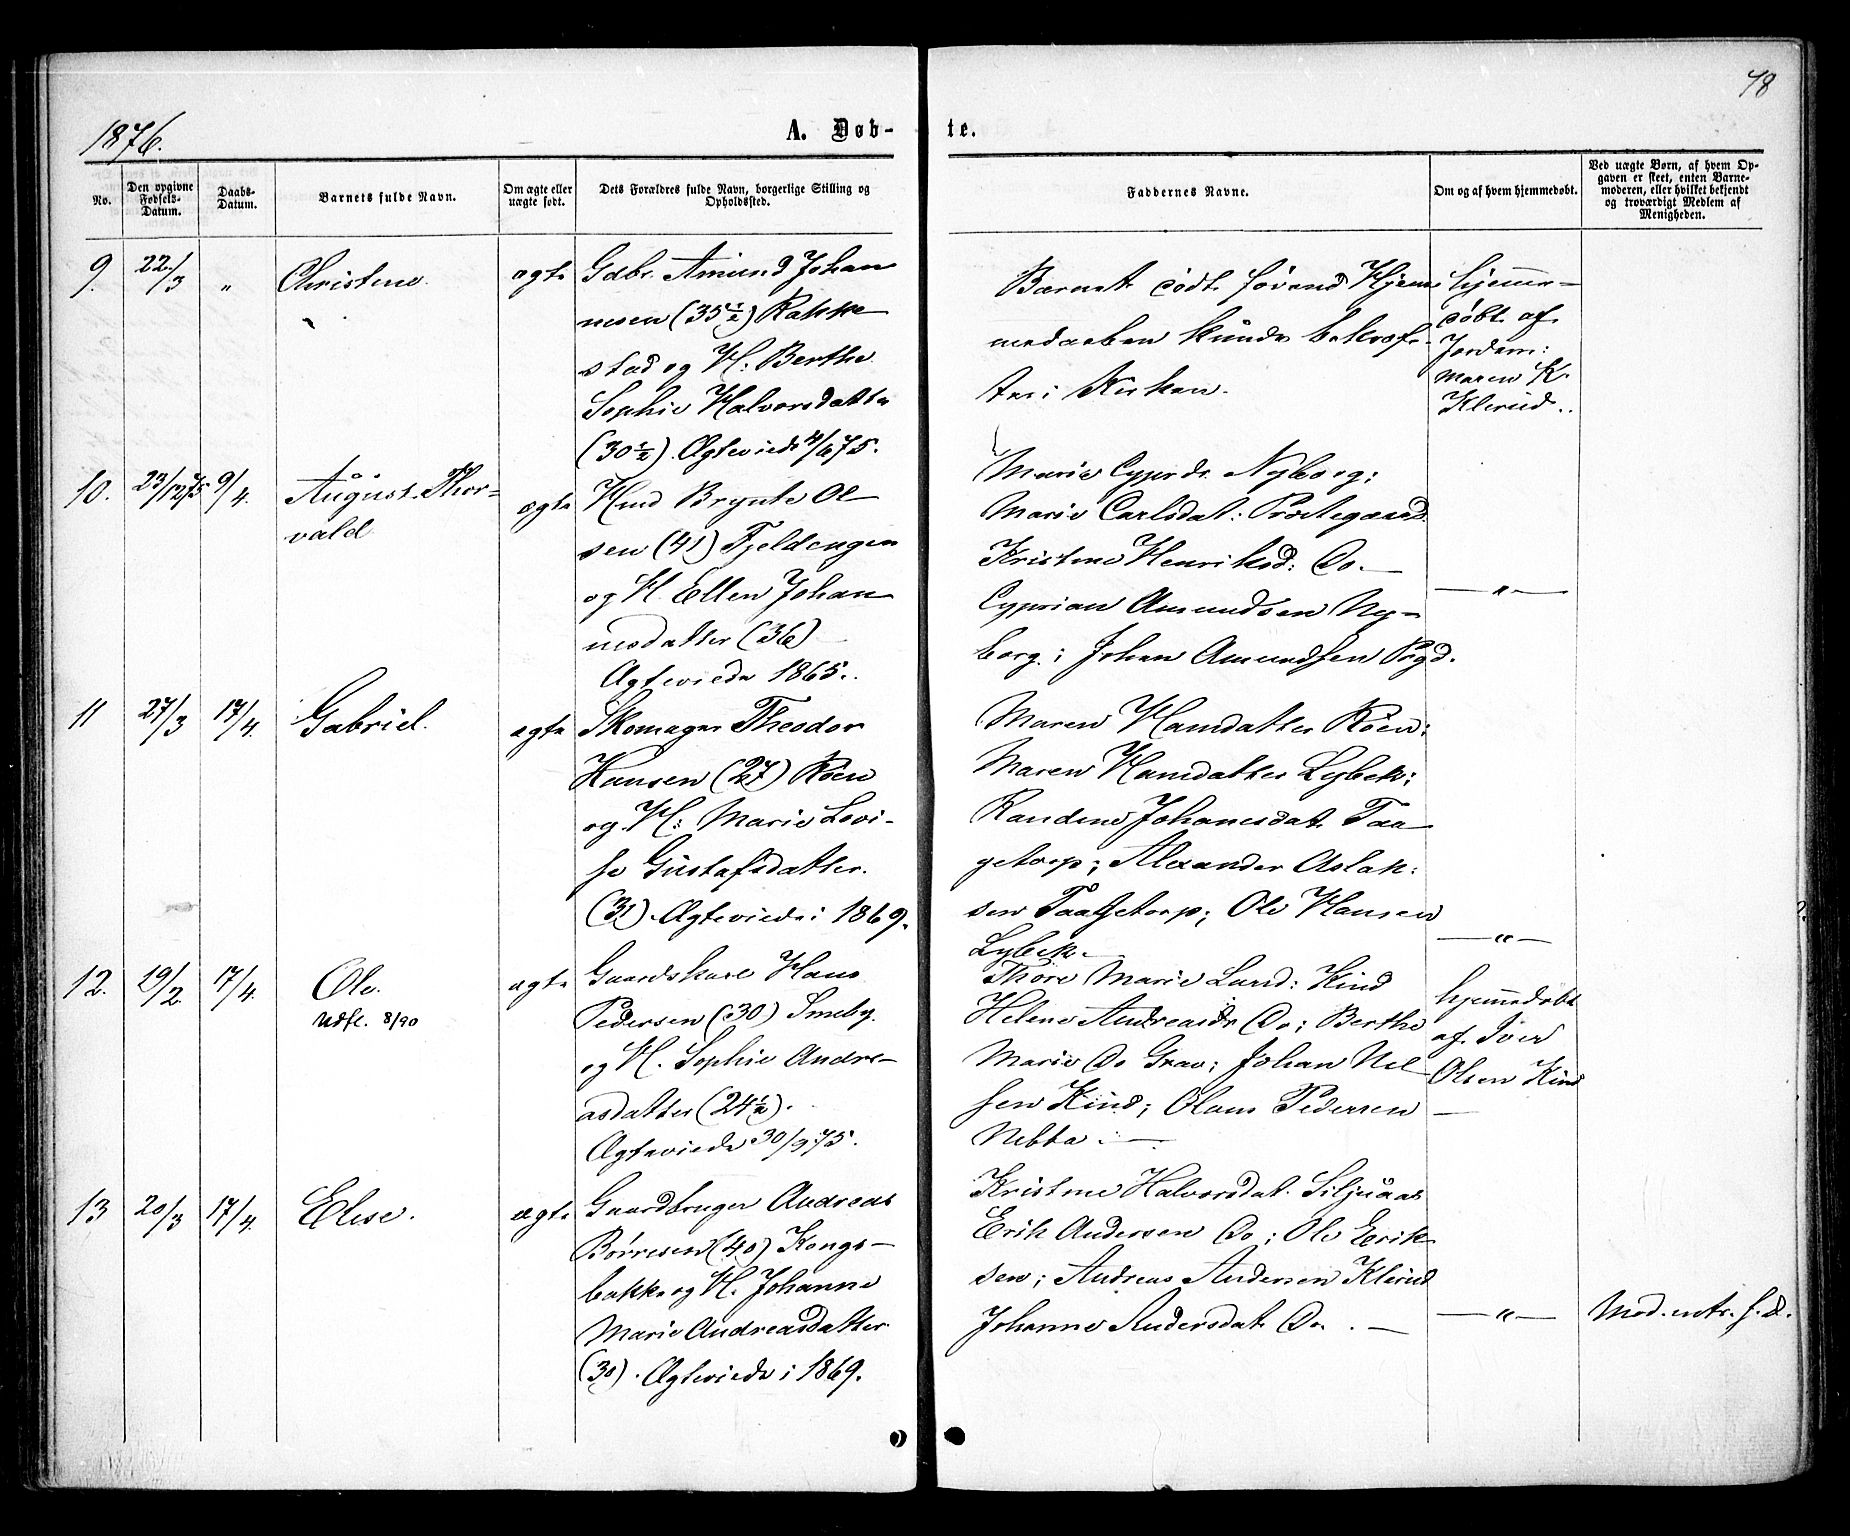 78
1876.
A. Døb-
te.
No.
Den opgivne Fødsels-Datum.
Daabs-Datum.
Barnets fulde Navn.
Om ægte eller uægte født.
Dets Forældres fulde Navn, borgerlige Stilling og Opholdssted.
Faddernes Navne.
Om og af hvem hjemmedøbt.
Ved uægte Børn, af hvem Opgaven er skeet, enten Barnemoderen, eller hvilket bekjendt og troværdigt Medlem af Menigheden.
9. 22/3 " Christine. ægte
Gdbr. Amund Johan
nesen (35 1/2) Rakke
stad og H: Berthe
Sophie Halvorsdatter
(30 1/2). Ægteviede 4/6 75.
Barnet døde førend Hjem
medaaben kunde bekræf-
tes i Kirken.
hjemme-
døbt af
Jordem:
Maren K.
Klerud..
10. 23/12 75 9/4. August Thor-
vald
ægte
Hmd Brynte Ol
sen (41) Fjeldengen
og H. Ellen Johan
nesdatter (36)
Ægteviede 1865.
Marie Cyprdr. Nyborg;
Marie Carlsdat: Præstegaard
Kristine Henriksd: Do. —
Cyprian Amundsen Ny-
borg; Johan Amundsen Prgd.
— " —
11 27/3 17/4. Gabriel. ægte
Skomager Theodor
Hansen (27) Roen
og H: Marie Lovi-
se Gustafsdatter.
(31). Ægteviede i 1869.
Maren Hansdatter Roen;
Maren Hansdatter Lybek;
Randine Johanesdat. Taa
getorp; Alexander Aslak-
sen Taagetorp; Ole Hansen
Lybek.
— " —
12. 19/2 17/4. Ole. ægte
Udfl. 8/90
Gaardskarl Hans
Pedersen (30) Smeby.
og H. Sophie Andre-
asdatter (24 1/2).
Ægteviede 30/9 75.
Thore Marie Lund: Kind
Helene Andreasdr Do; Berthe
Marie Do Grav; Johan Nil
sen Kind; Olaus Pedersen
Nebba. —
hjemmedøbt
af Iver
Olsen Kind
—
13 20/3 17/4. Elise. ægte
Gaardbruger Andreas
Børresen (40) Kongs-
bakke og H. Johanne
Marie Andreasdatter
(30). Ægteviede i 1869.
Kristine Halvorsdat. Siljuaas
Erik Andersen Do; Ole Erik
sen; Andreas Andersen Klerud
Johanne Andersdat. Do. —
— " —
Mod. intr. s. d.